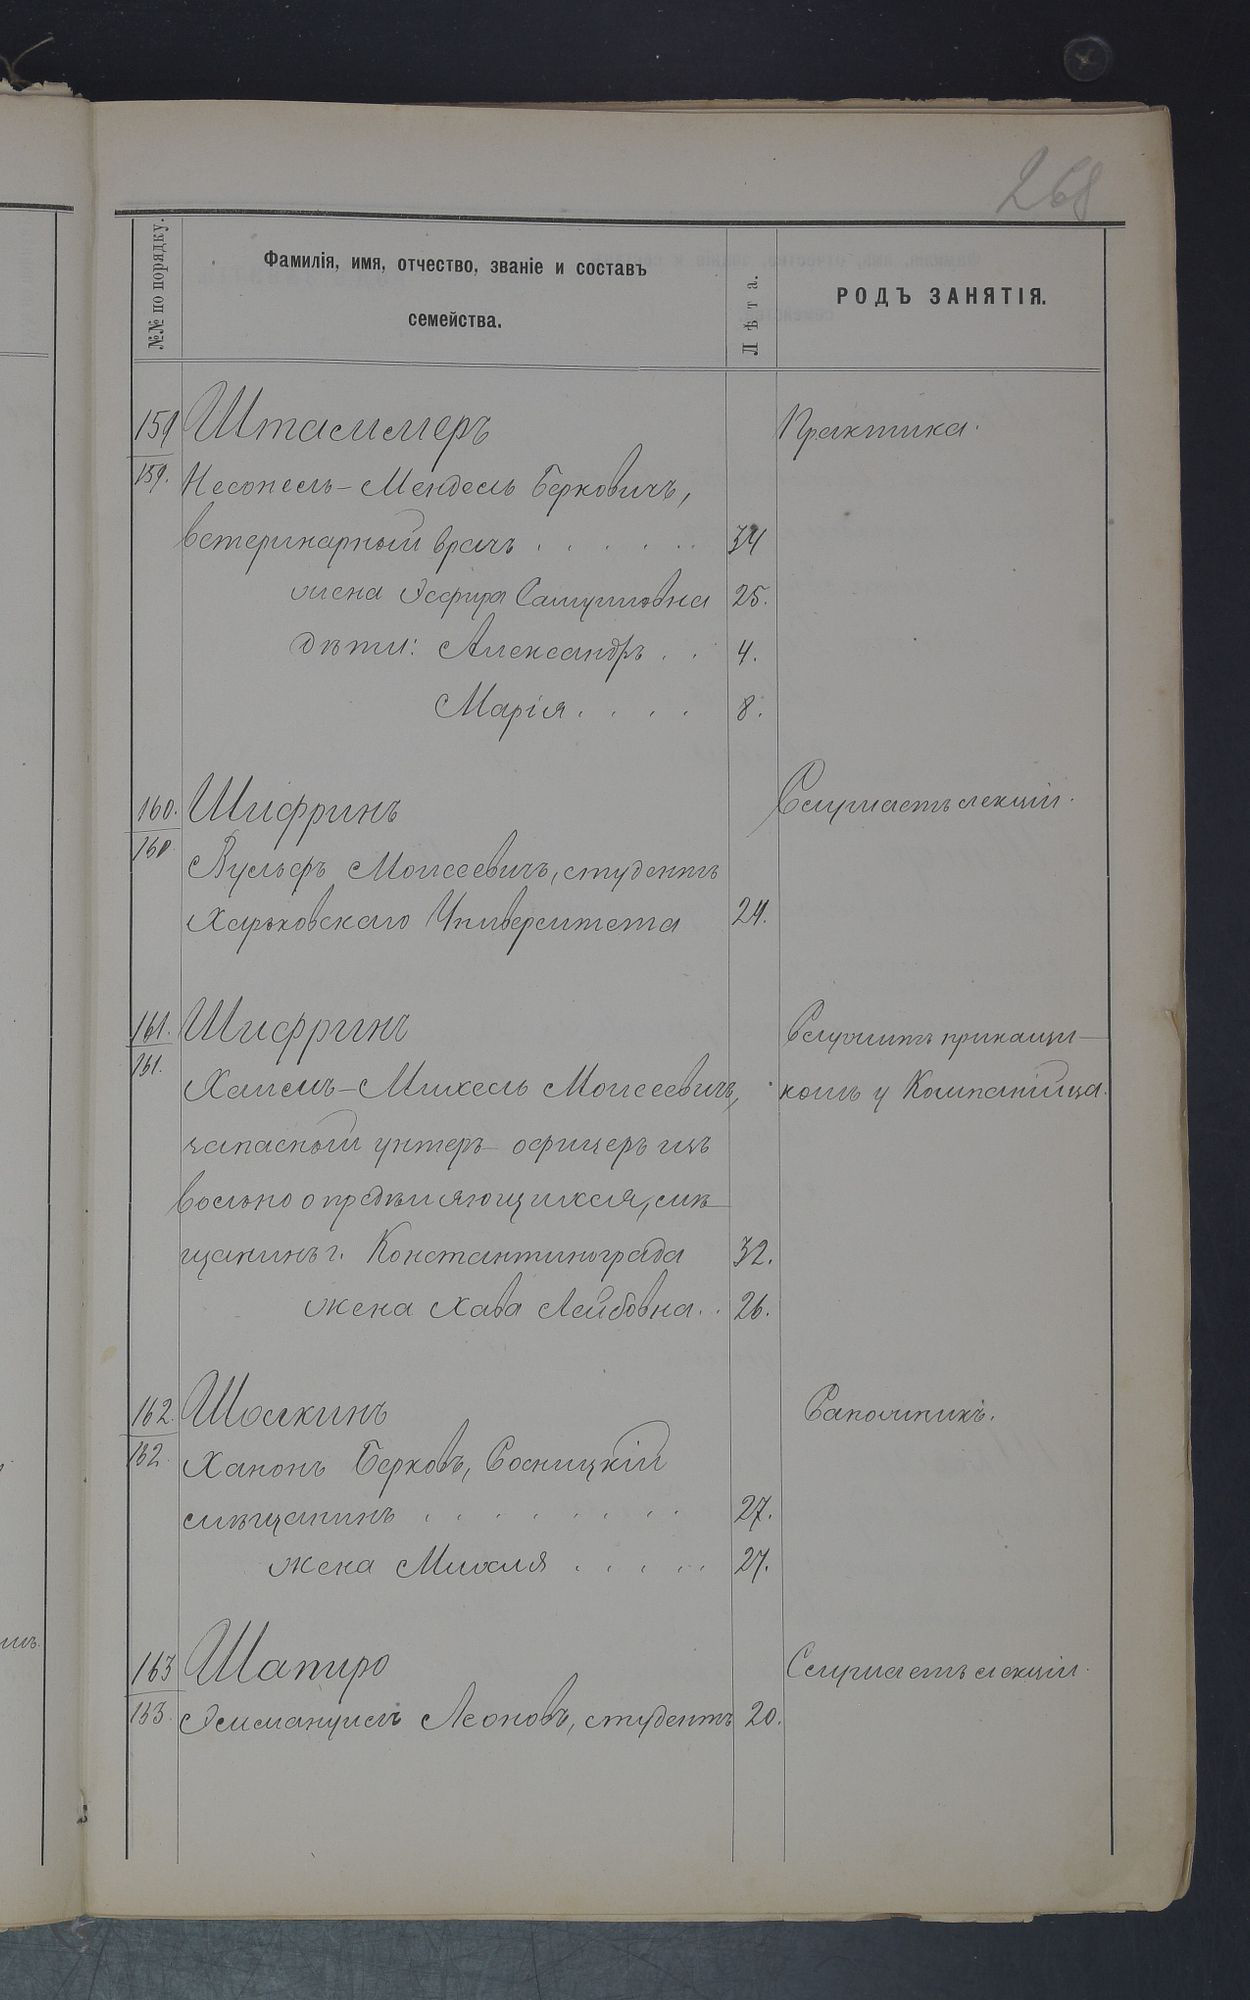 268
№№ по порядку.
Фамилія, имя, отчество, званіе и составъ
семейства.
Лѣта.
РОДЪ ЗАНЯТІЯ.
159 Штаммеръ Практика.
159. Мендель Берковичъ,
ветеринарный врачъ . . . . . . 34
жена Эсфирь Самуиловна 25.
дѣти: Александръ . . 4.
Марія . . . . 8.
160. Шифринъ Слушаетъ лекціи.
160 Вульфъ Моисеевичъ, студентъ
Харьковскаго Университета 24.
161. Шифринъ Служитъ прикащи-
161. Хаимъ-Михель Моисеевичъ, комъ у Компанійца.
запасный унтеръ-офицеръ изъ
вольноопредѣляющихся, мѣ-
щанинъ г. Константинограда 32.
жена Хава Лейбовна . . 26.
162. Шолкинъ Сапожникъ.
162 Ханонъ Берковъ, Сосницкій
мѣщанинъ . . . . . . . . . 27.
жена Михля . . . . . 27.
163 Шапиро Слушаетъ лекціи.
163. Эммануилъ Леоновъ, студентъ 20.